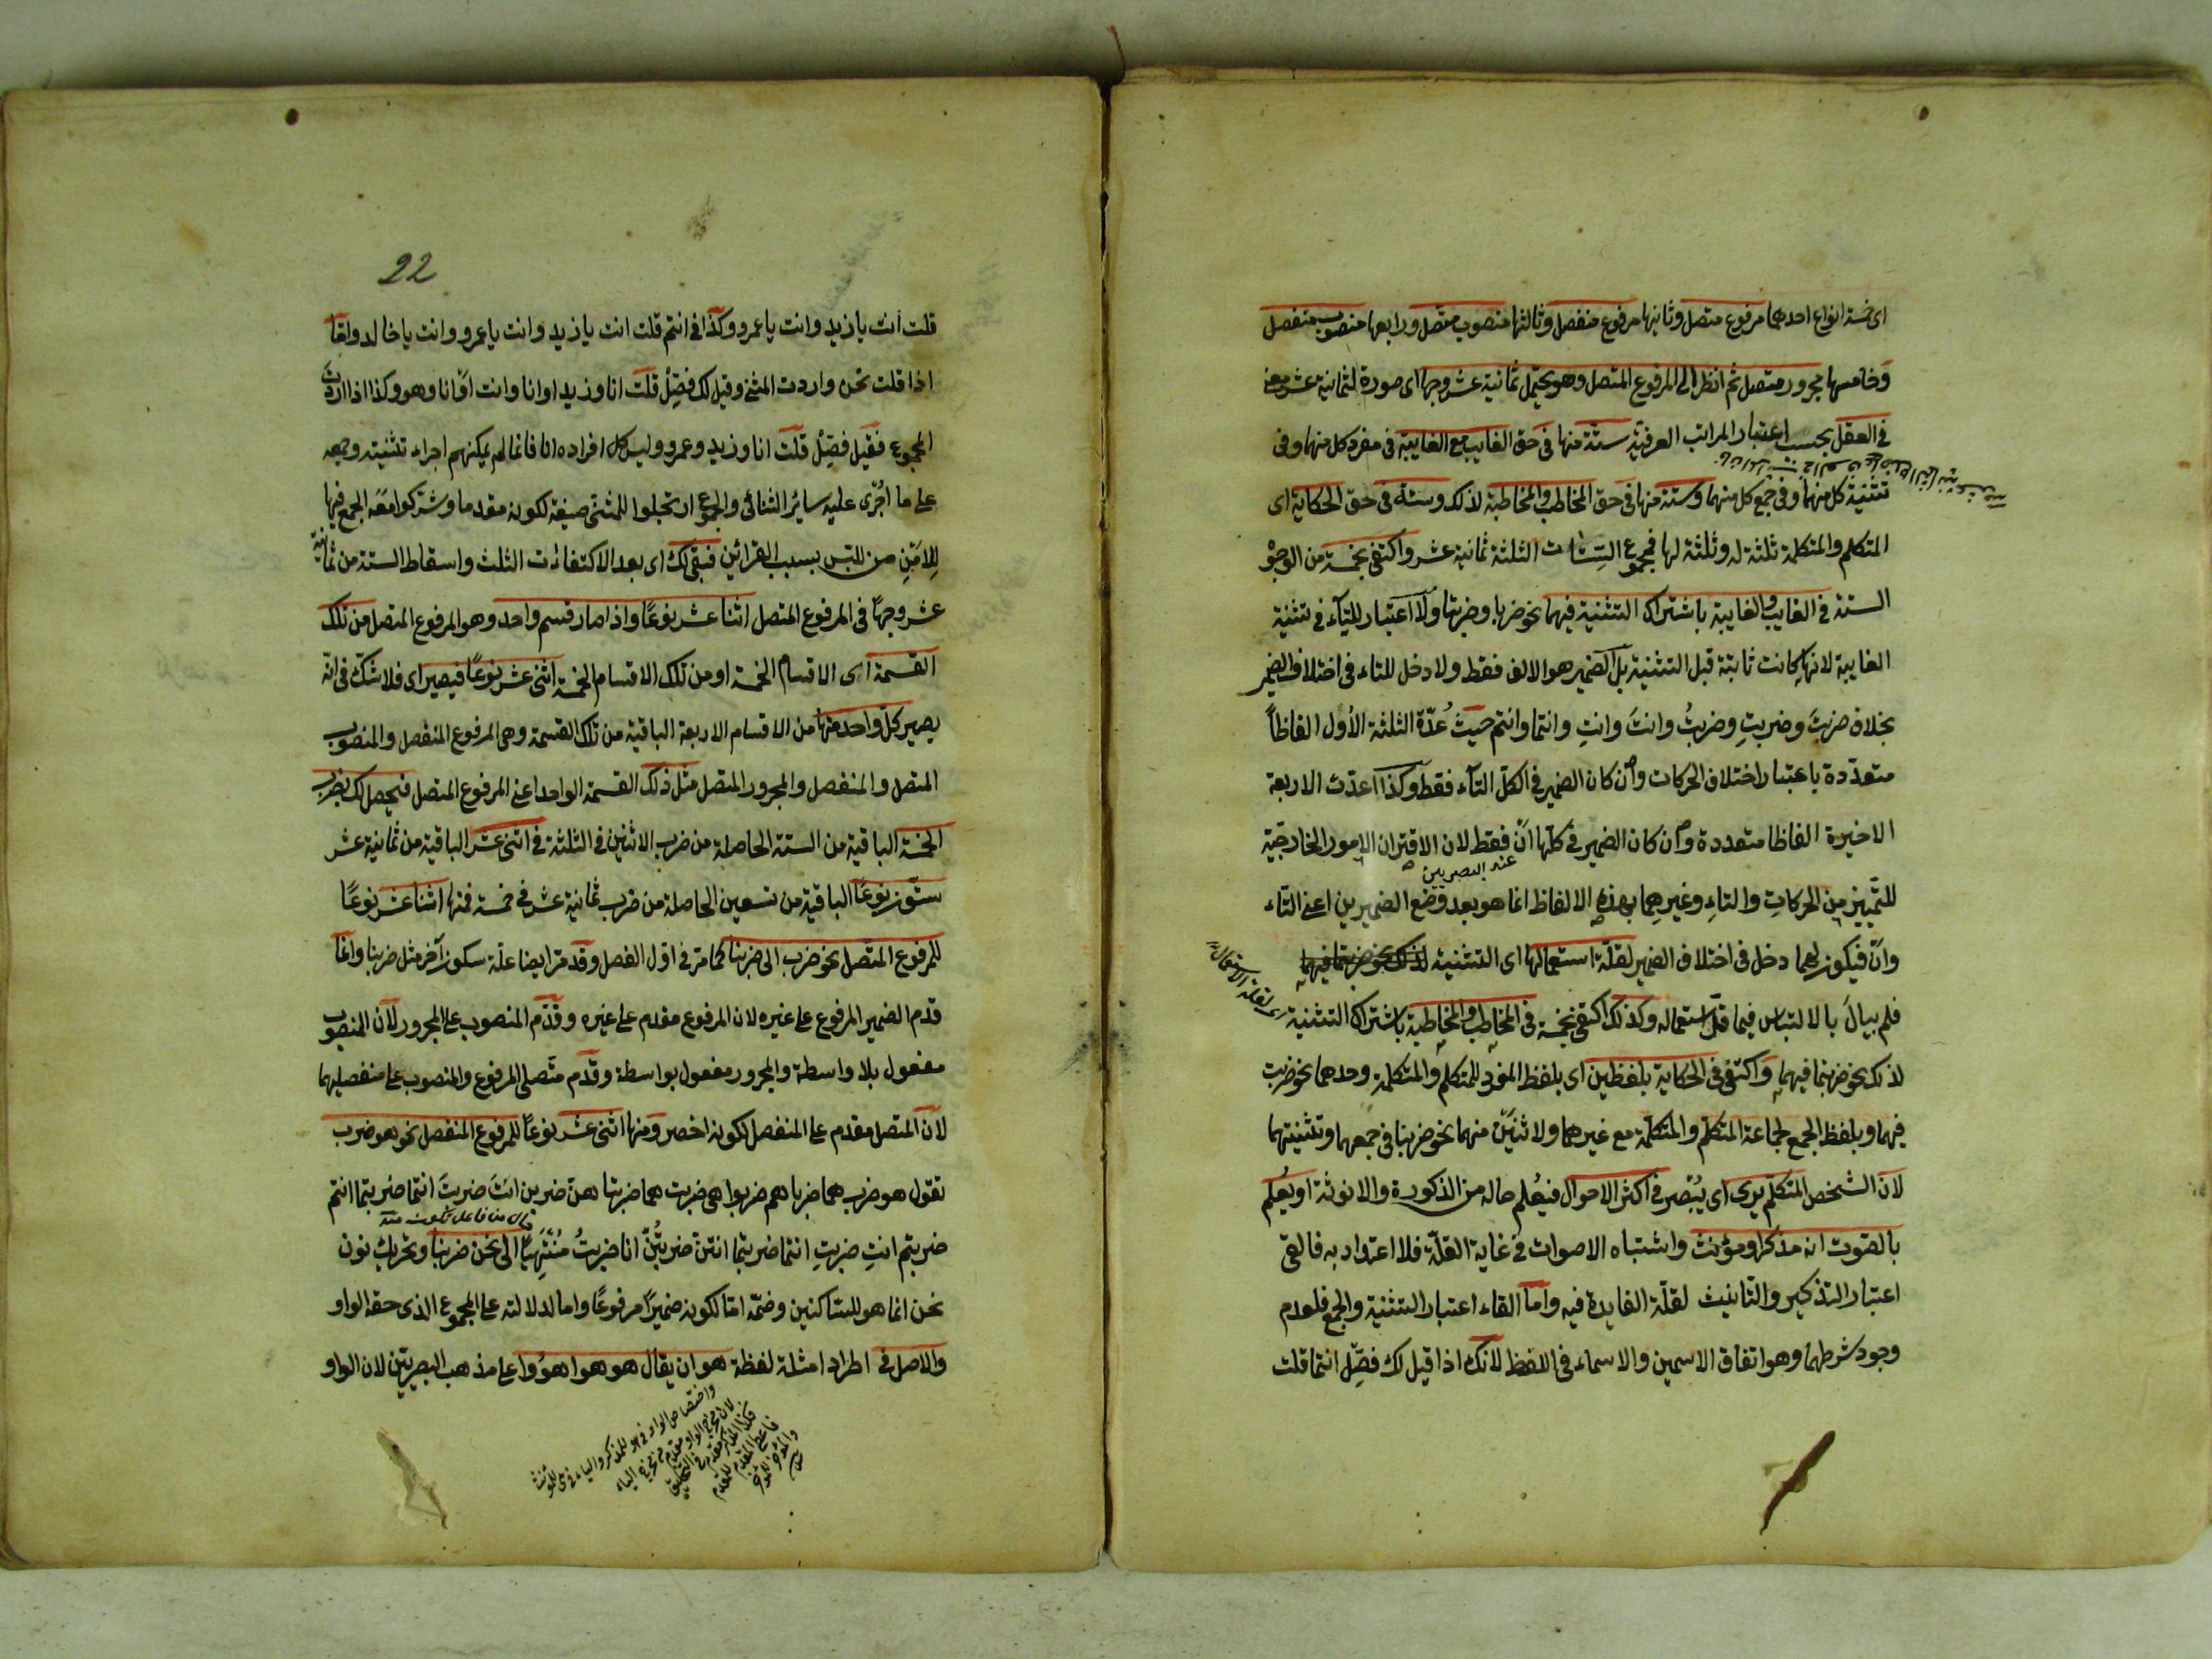 اى خمسة انواع احدهما مرفوع متصل وثانيها مرفوع منفصل وثالثها منصوب متصل ورابعها منصوب منفصل
وخامسها مجرور متصل ثم انظر الى المرفوع المتصل وهو يحتمل ثمانية عشر وجها اى صورة لثمانية عشر معنى
في العقل بحسب اعتبار المراتب العرفية ستة منها في حق الغايب مع الغايبة فى مفرد كل منهما وفى
تثنية كل منهما وفى جمع كل منهما وستة منها فى حق المخاطب والمخاطبة لذلك وستة فى حق الحكاية اى
المتكلم والمتكلمة ثلثة له وثلثة لها فمجموع الستات الثلثة ثمانية عشر واكتفى بخمسة من الوجوه
الستة فى الغايب والغايبة باشتراك التثنية فيهما نحو ضربا وضربتا ولا اعتبار للتآء فى تثنية
الغايبة لانها كانت ثابتة قبل التثنية بل الضمير هو الالف فقط ولا دخل للتاء فى اختلاف الضمير
بخلاف ضربتَ وضربتِ وضربتُ وانتَ وانتِ وانتما وانتم حيث عُدّة الثلثة الأول الفاظاً
متعدّدة باعتبار اختلاف الحركات وان كان الضمير فى الكلّ التآء فقط وكذا اعدّت الاربعة
الاخيرة الفاظا متعددة وان كان الضمير فى كلّها انْ فقط لان الاقتران الامور الخارجيّة
عند البصريين
للتّمييز من الحركاتِ والتاءِ وغيرهما بهذه الالفاظ انما هو بعد وضع الضميرين اعنى التّاء
وانْ فيكون لهما دخل فى اختلاف الضمير لقلّة استعمالها اى التثنية
فلم يبالَ بالالتباس فيما قلّ استعماله وكذلك اكتفى بخمسة فى المخاطب والمخاطبة باشتراك التثنية
لذلك نحو ضربتما فيهما واكتفى فى الحكاية بلفظين اى بلفظ المفرد للمتكلم والمتكلمة وحدهما نحو ضربت
فيهما وبلفظ الجمع لجماعة المتكلّم والمتكلّمة مع غيرهما ولاثنين منهما نحو ضربنا فى جمعهما وتثنيتهما
لانّ الشخص المتكلم يرى اى يُبْصر فى اكثر الاحوال فيُعلم حاله من الذكورة والانوثة او يُعلم
بالصّوت انه مذكر او مؤنث واشتباه الاصوات فى غاية القلّة فلا اعتداد به فالقى
اعتبار التذكير والتّانيث لقلّة الفايدة فيه وامّا القاء اعتبار التثنية والجمع فلعدم
وجود شرطهما وهو اتفاق الاسمين والاسماء فى اللفظ لانّك اذا قيل لك فصّل انتما قلت
22
قلت انت يا زيد وانت يا عمرو وكذا فى انتم قلت انت يا زيد وانت يا عمرو وانت يا خالد وامّا
اذا قلت نحن واردت المثنى وقيل لك فصّل قلت انا وزيد او انا وانت او انا وهو وكذا اذا اردت
المجموع فقيل فصّل قلت انا وزيد وعمرو وليس كل افراده انا فانما لم يمكنهم اجراء تثنيته وجمعه
على ما اُجْرى عليه ساير الثنائى والجموع ارتجلوا للمثنى صيغة لكونه مقدما وشركوا معَه الجمع فيها
للامنِ من اللبس بسبب القرائن فبقى لك اى بعد الاكتفاءات الثلث واسقاط الستة من ثمانية
عشر وجهًا فى المرفوع المتصل اثنا عشر نوعًا واذا صار قسم واحد وهو المرفوع المتصل من تلك
القسمة اى الاقسام الخمسة او من تلك الاقسام الخمسة اثنى عشر نوعًا فيصير اى فلا شكّ فى انّه
يصير كلّ واحد منها من الاقسام الاربعة الباقية من تلك القسمة وهى المرفوع المنفصل والمنصوب
المتصل والمنفصل والمجرور المتصل مثل ذلك القسمة الواحد اعنى المرفوع المتصل فيحصل لك بضرب
الخمسة الباقية من الستة الحاصلة من ضرب الاثنين فى الثلثة فى اثنى عشر الباقية من ثمانية عشر
ستّون نوعًا الباقية من تسعين الحاصلة من ضرب ثمانية عشر فى خمسة فمنها اثنا عشر نوعًا
للمرفوع المتّصل نحو ضرب الى ضربنا كما مرّ فى اوّل الفصل وقد مرّ ايضا علّة سكون آخر مثل ضربنا وانما
قدّم الضمير المرفوع على غيره لان المرفوع مقدم على غيره وقدّم المنصوب على المجرور لآن المنصوب
مفعول بلا واسطة والمجرور مفعول بواسطة وقدّم متّصلى المرفوع والمنصوب على منفصليهما
لانّ المتصل مقدم على المنفصل لكونه اخصر ومنها اثنى عشر نوعًا للمرفوع المنفصل نحو هو ضرب
تقول هو ضرب هما ضربا هم ضربوا هى ضربت هما ضربتا هنّ ضربن انتَ ضربتَ انتما ضربتما انتم
ضربتم انتِ ضربتِ انتما ضربتما انتنّ ضربتُنّ انا ضربتُ مُنْتَهِيًا الى نحن ضربنا وتحريك نون
نحن انما هو للساكنين وضمّه امّا لكونه ضميرًا مرفوعًا واما لدلالته على المجموع الذى حقه الواو
والاصل فى اطراد امثلة لفظة هو ان يقال هو هوا هوُوا على مذهب البصريّين لان الواو
واختصاص الواو فى هو للمذكر والياء فى هى للمؤنث
لان مخرج الواو مقدم من مخرج الياء